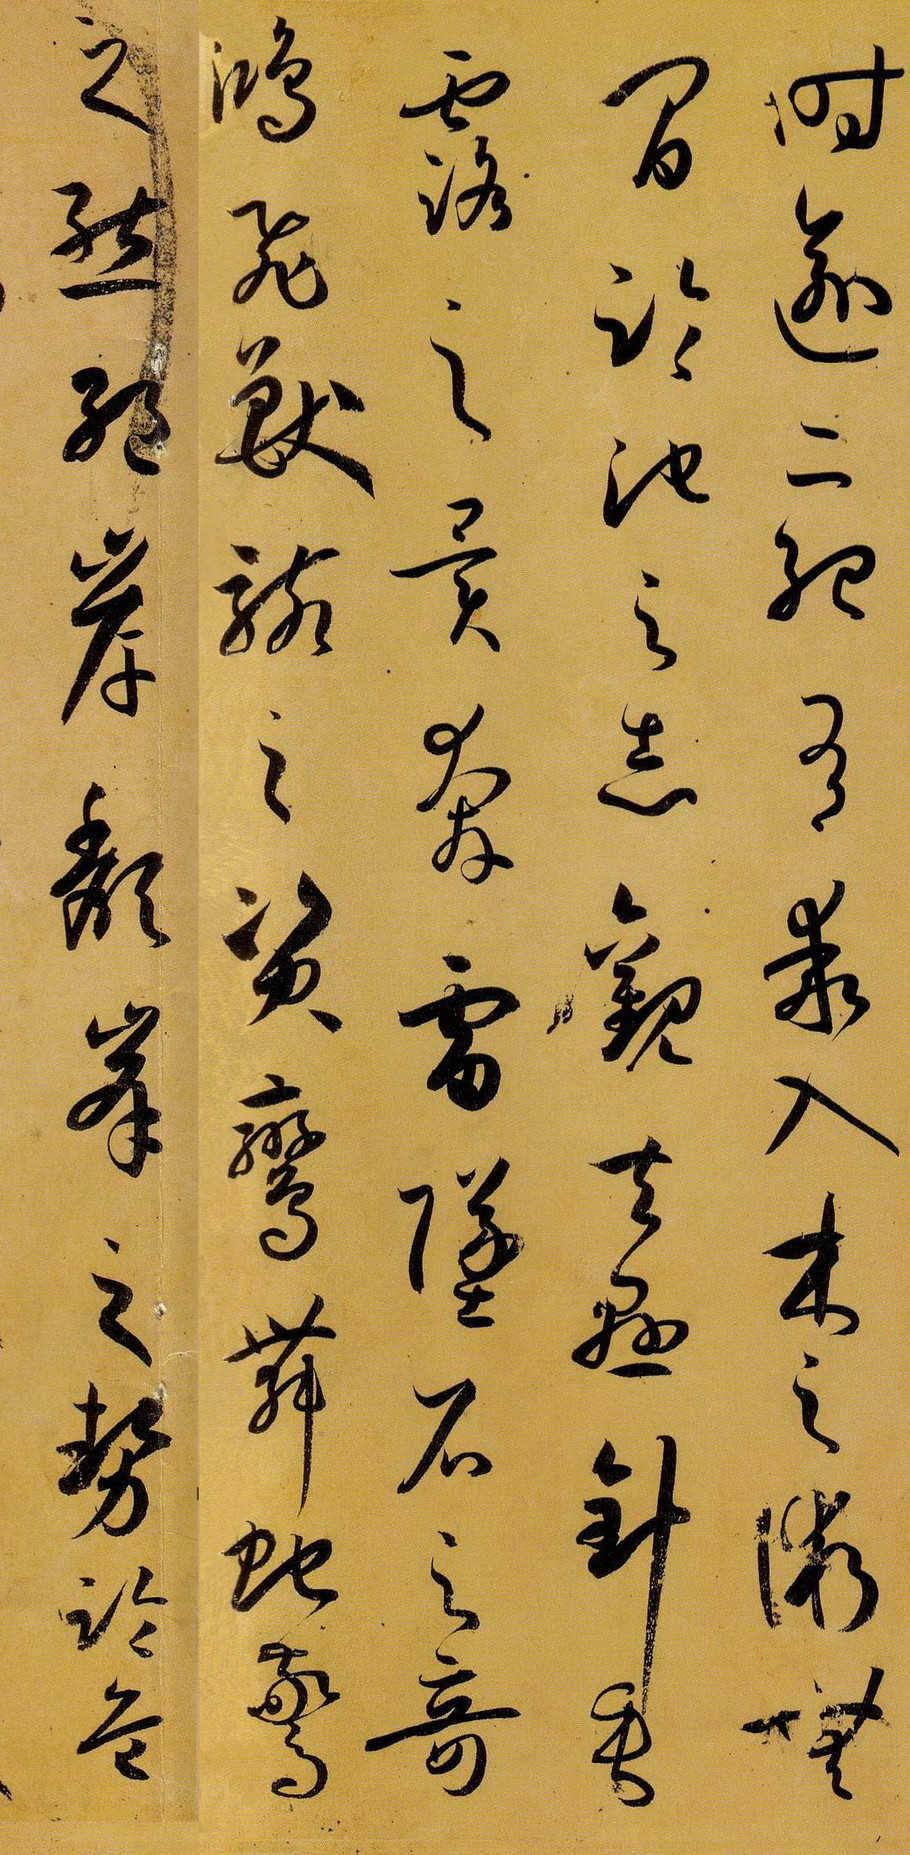 時逾二紀有乖入木之術無
間臨池之志觀夫懸針垂
露之異奔雷墜石之奇
鴻飛獸駭之資鸞舞蛇驚
之態絕岸頹峯之勢臨危